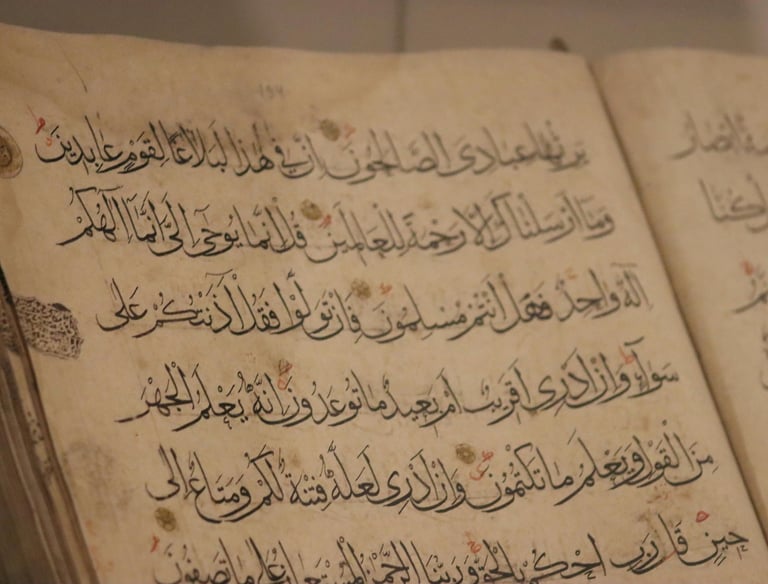 يَرِثُهَا عِبَادِيَ الصَّالِحُونَ إِنَّ فِي هٰذَا لَبَلَاغًا لِقَوْمٍ عَابِدِينَ
وَمَا أَرْسَلْنَاكَ إِلَّا رَحْمَةً لِلْعَالَمِينَ قُلْ إِنَّمَا يُوحَى إِلَيَّ أَنَّمَا إِلٰهُكُمْ
إِلٰهٌ وَاحِدٌ فَهَلْ أَنْتُمْ مُسْلِمُونَ فَإِنْ تَوَلَّوْا فَقُلْ آذَنْتُكُمْ عَلَى
سَوَاءٍ وَإِنْ أَدْرِي أَقَرِيبٌ أَمْ بَعِيدٌ مَا تُوعَدُونَ إِنَّهُ يَعْلَمُ الْجَهْرَ
مِنَ الْقَوْلِ وَيَعْلَمُ مَا تَكْتُمُونَ وَإِنْ أَدْرِي لَعَلَّهُ فِتْنَةٌ لَكُمْ وَمَتَاعٌ إِلَى
حِينٍ قَالَ رَبِّ احْكُمْ بِالْحَقِّ وَرَبُّنَا الرَّحْمٰنُ الْمُسْتَعَانُ عَلَى مَا تَصِفُونَ